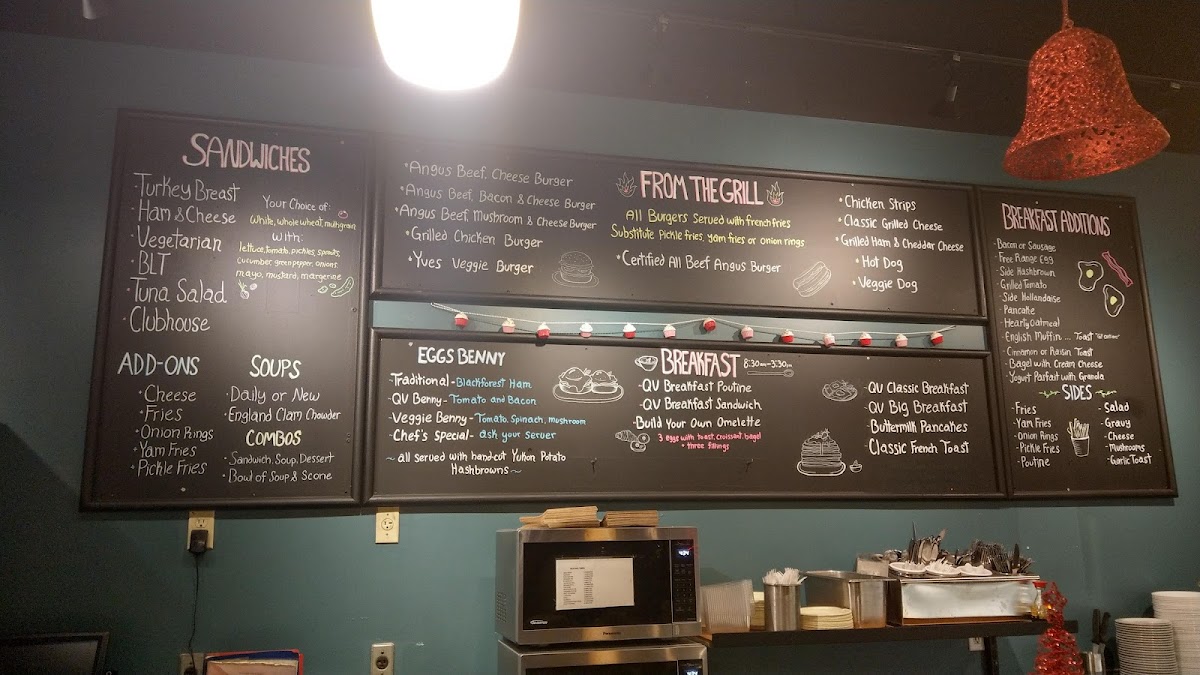 SANDWICHES
·Turkey Breast
·Ham & Cheese
·Vegetarian
·BLT
·Tuna Salad
·Clubhouse
Your Choice of:
White, whole wheat, multigrain
with:
lettuce, tomato, pickles, sprouts,
cucumber, green pepper, onions
mayo, mustard, margerine
ADD-ONS
·Cheese
·Fries
·Onion Rings
·Yam Fries
·Pickle Fries
SOUPS
·Daily or New
·England Clam Chowder
COMBOS
·Sandwich, Soup, Dessert
·Bowl of Soup & Scone
·Angus Beef, Cheese Burger
·Angus Beef, Bacon & Cheese Burger
·Angus Beef, Mushroom & Cheese Burger
·Grilled Chicken Burger
·Yves Veggie Burger
FROM THE GRILL
All Burgers Served with french fries
Substitute Pickle fries, yam fries or onion rings
·Certified All Beef Angus Burger
·Chicken Strips
·Classic Grilled Cheese
·Grilled Ham & Cheddar Cheese
·Hot Dog
·Veggie Dog
EGGS BENNY
-Traditional - Blackforest Ham
-QV Benny - Tomato and Bacon
-Veggie Benny - Tomato, Spinach, mushroom
-Chef's Special - ask your server
~ all served with handcut Yukon Potato
Hashbrowns ~
BREAKFAST 8:30am-3:30pm
-QV Breakfast Poutine
-QV Breakfast Sandwich
-Build Your Own Omelette
3 eggs with toast, croissant, bagel
+ three fillings
-QV Classic Breakfast
-QV Big Breakfast
-Buttermilk Pancakes
-Classic French Toast
BREAKFAST ADDITIONS
-Bacon or Sausage
-Free Range Egg
-Side Hashbrown
-Grilled Tomato
-Side Hollandaise
-Pancake
-Hearty Oatmeal
-English Muffin ... Toast
-Cinnamon or Raisin Toast
-Bagel with Cream Cheese
-Yogurt Parfait with Granola
SIDES
-Fries
-Yam Fries
-Onion Rings
-Pickle Fries
-Poutine
-Salad
-Gravy
-Cheese
-Mushrooms
-Garlic Toast
Panasonic